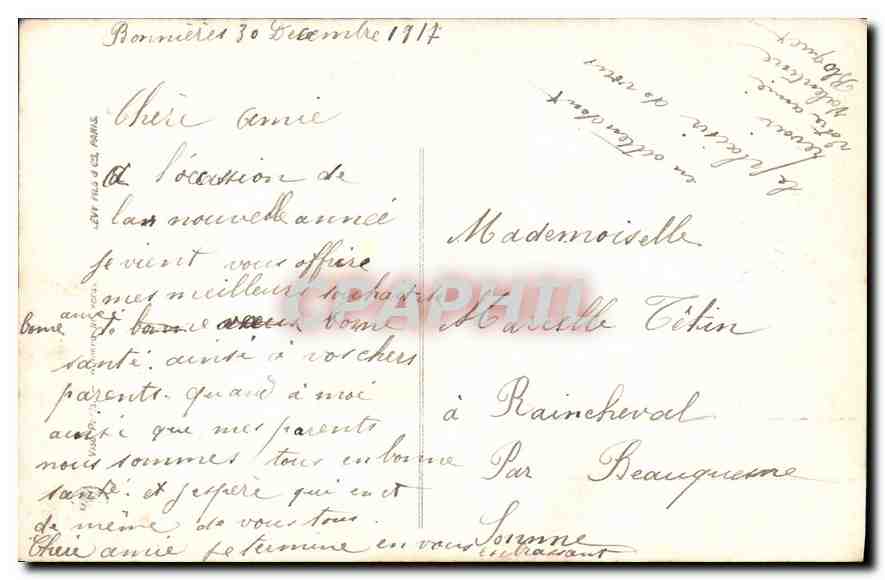 Bonnières 30 Decembre 1917
Chère amie
a l'occasion de
la nouvelle année
je vient vous offrire
mes meilleurs souhaits
bonne année de bonne
santé. ainsi à vos chers
parents. quand à moi
ainsi que mes parents
nous sommes tous en bonne
santé. et j'espère qui en et
de même de vous tous.
Chère amie je termine en vous
embrassant
en attendant
le plaisir de vous
revoir
votre amie
Valentine
Mademoiselle
Marielle Têtin
à Raincheval
Par Beauquesne
Somme
LEVY FILS & Cie, PARIS
CPAPHIL